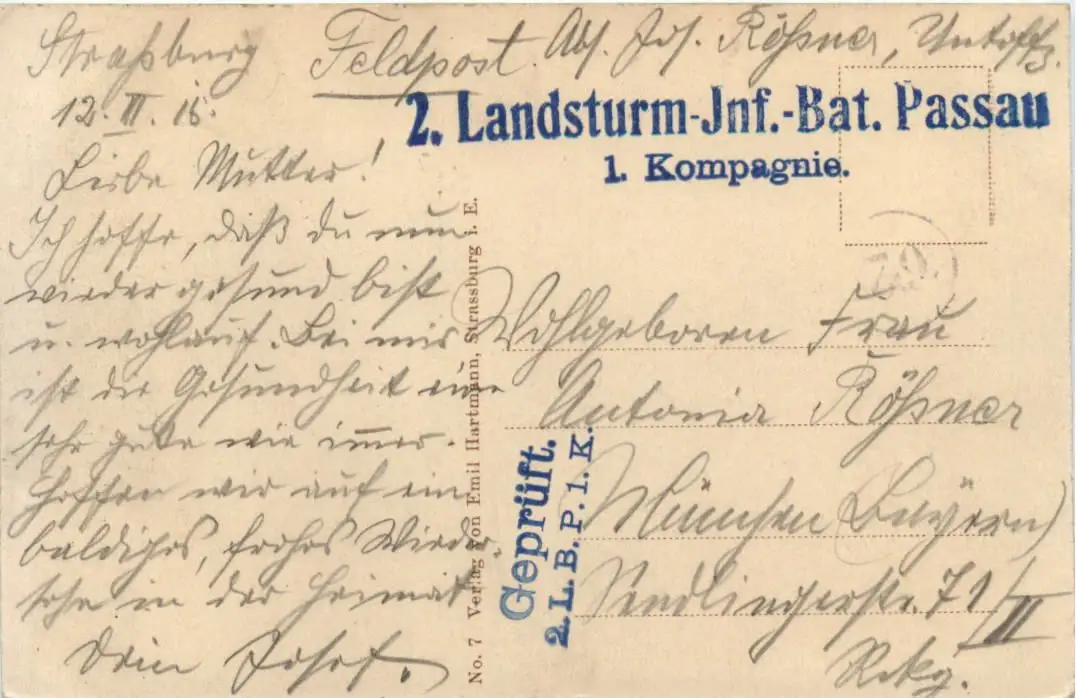 Straßburg
12. III. 16.
Feldpost. Abs. Jos. Rößner, Untoffz.
2. Landsturm-Jnf.-Bat. Passau
1. Kompagnie.
Liebe Mutter!
Ich hoffe, daß du nun
wieder gesund bist
u. wohlauf. Bei mir
ist die Gesundheit eine
sehr gute wie immer.
Hoffen wir auf ein
baldiges, frohes Wieder-
sehn in der Heimat
Dein Josef.
No. 7 Verlag von Emil Hartmann, Strassburg i. E.
Geprüft.
2. L. B. P. 1. K.
Wohlgeboren Frau
Antonie Rößner
München (Bayern)
Sendlingerstr. 71/II